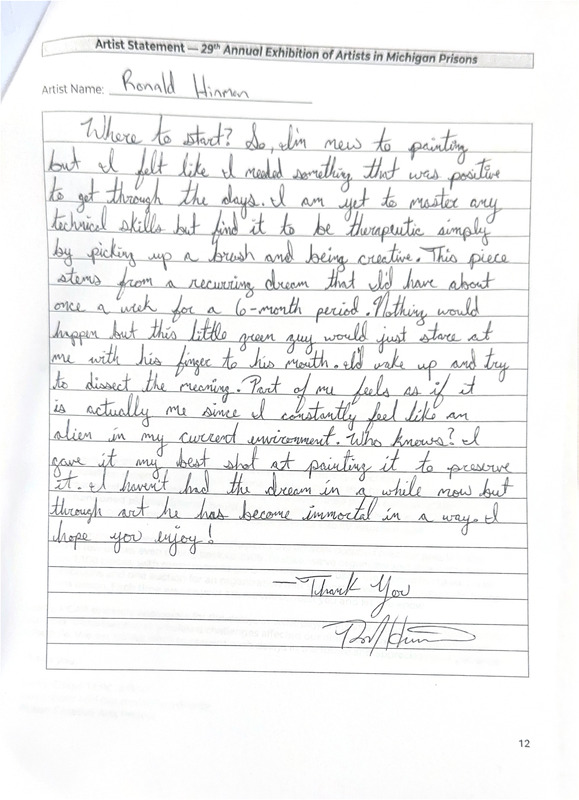 Artist Statement — 29th Annual Exhibition of Artists in Michigan Prisons
Artist Name: Ronald Hinman
Where to start? So, I'm new to painting
but I felt like I needed something that was positive
to get through the days. I am yet to master any
technical skills but find it to be therapeutic simply
by picking up a brush and being creative. This piece
stems from a recurring dream that I'd have about
once a week for a 6-month period. Nothing would
happen but this little green guy would just stare at
me with his finger to his mouth. I'd wake up and try
to dissect the meaning. Part of me feels as if it
is actually me since I constantly feel like an
alien in my current environment. Who knows? I
gave it my best shot at painting it to preserve
it. I haven't had the dream in a while now but
through art he has become immortal in a way. I
hope you enjoy!
— Thank You
12